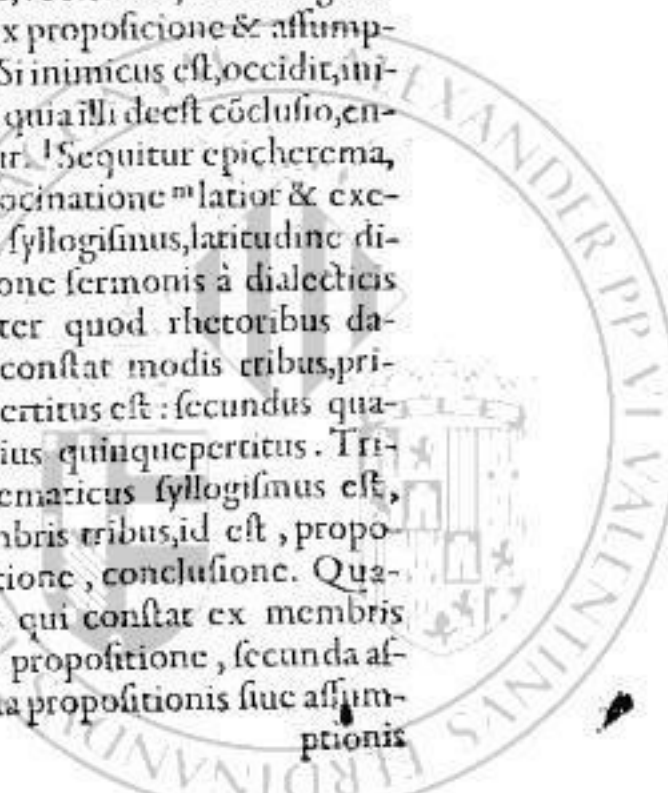 x propoſicione & aſſump-
Si inimicus eſt, occidit, ini-
quia illi deeſt cōcluſio, en-
ur. lSequitur epicherema,
ocinatione mlatior & exe-
ſyllogiſmus, latitudine di-
one ſermonis à dialecticis
ter quod rhetoribus da-
conſtat modis tribus, pri-
ertitus eſt : ſecundus qua-
ius quinquepertitus. Tri-
ematicus ſyllogiſmus eſt,
nbris tribus, id eſt , propo-
tione , concluſione. Qua-
qui conſtat ex membris
propoſitione , ſecunda aſ-
ta propoſitionis ſiue aſſum-
ptionis
ALEXANDER PP VI VALENTINVS
FERDINANDVS